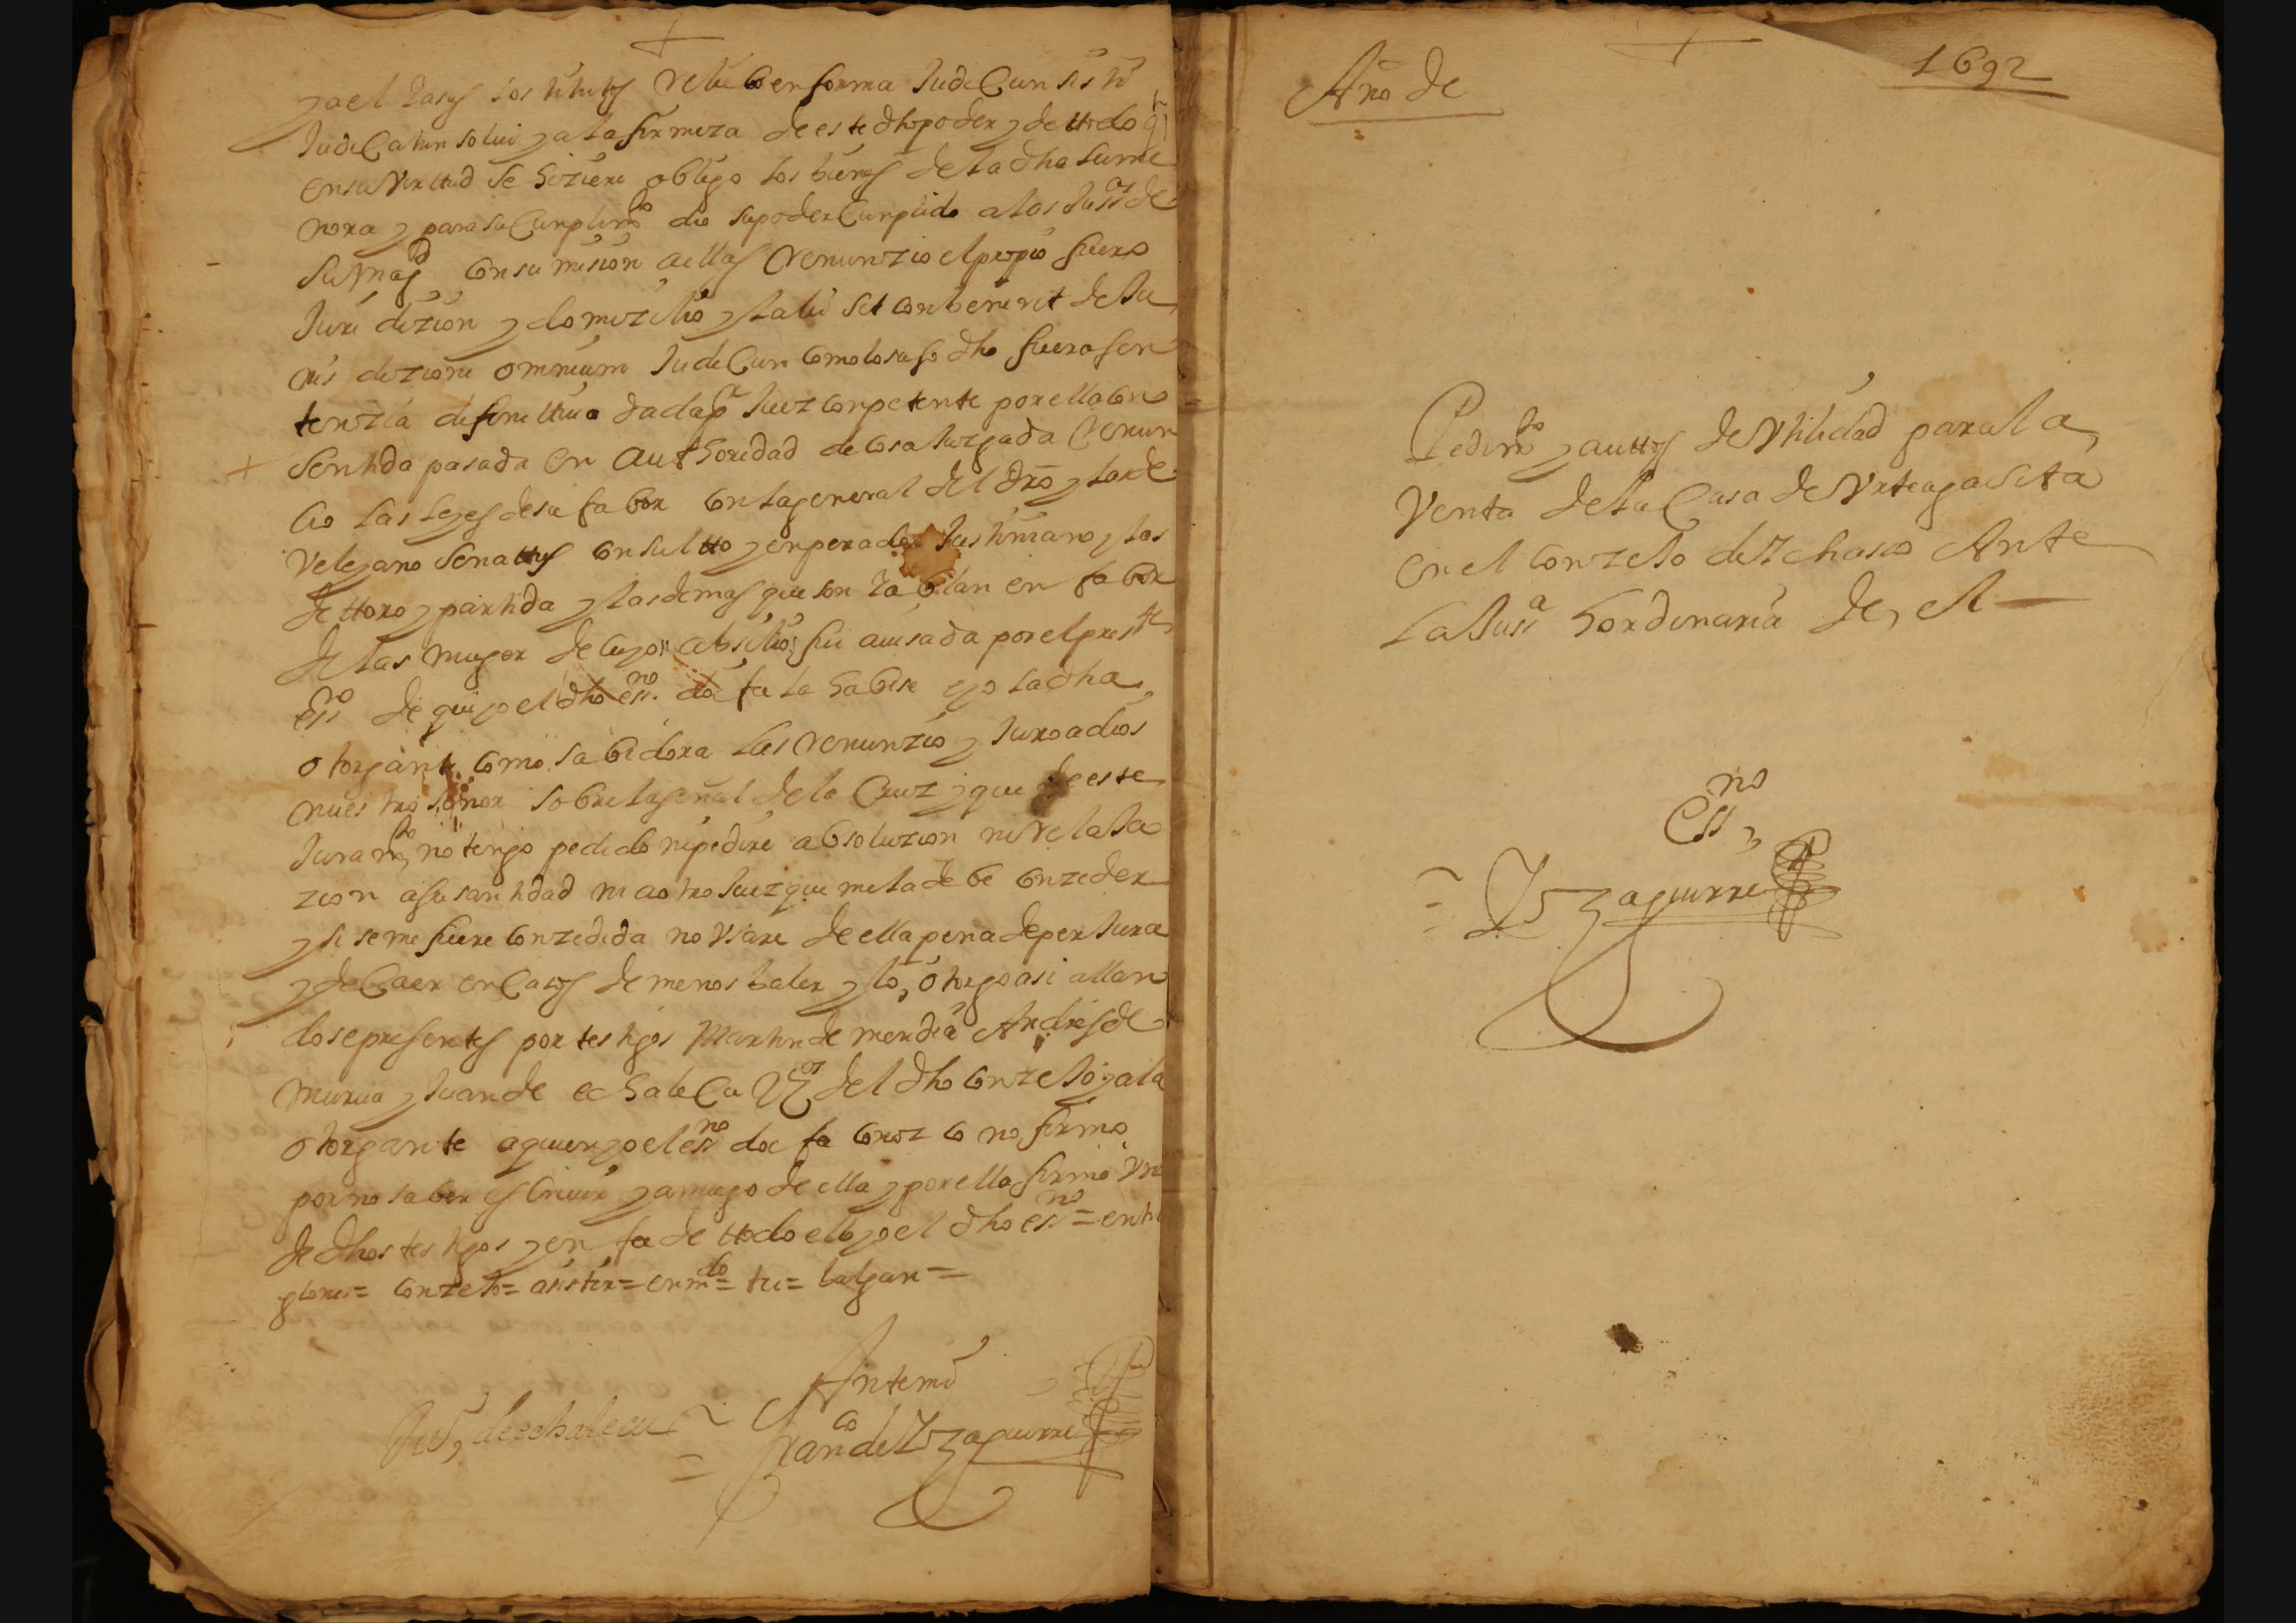 y a el y a sus sostitutos relebo en forma Judicun sisti
Judicatun solui y a la firmeza de este dho poder y de ttodo
en su Virttud se hiziere obligo los bienes de la dha su me
nora y para su Cunplimto dio su poder Cunplido a las Jussas de
su Magd con sumision a ellas Renunzio el propio fuero
Juridizion y domizilio y la lei sit conbenerit de Ju
risdizione omnium Judicun como lo susodho fuera sen
tenzia difinittiua dada pr Juez conpetente por ella con
sentida pasada en authoridad de cosa Juzgada Renun
cio las leyes de su fabor con la general del dro y las de
Veleyano Senattus consultto y enperador Justiniano y los
de ttoro y partida y las demas que son y ablan en fabor
de las muger de cuyo ausilio fui auisada por el preste
essno de qui yo el dho essno doi fe la habise e yo la dha
otorgante como sabidora las renunzio y Juro a dios
nuestro señor sobre la señal de la Cruz y que de este
Juramto no tengo pedido ni pedire absoluzion ni relaJa
zion a su santidad ni a otro Juez que me la debe conzeder
y si se me fuere conzedida no Vsare de ella pena de perJura
y de Caer en Casos de menos baler y lo otorgo asi allan
dose presentes por testigos Martin de mendia Andres de
murua y Juan de echaleCu Vzos del dho conzeJo y a la
otorgante a quien yo el essno doi fe conozco no firmo
por no saber escriuir y a ruego de ella y por ella firmo Vno
de dhos testigos y en fe de ttodo ello yo el dho esno = entre
glones = conzeJo = asistir = enmdo = tu = balgan =
Antemi
Jun de echalecu
Franco de Yzaguirre
Año de
1692
Pedimto y auttos de Vtilidad para la
Venta de la Casa de Vrteaga sita
en el conzeJo de Ychaso Ante
la Jussa hordinaria de el
Essno
Yzaguirre